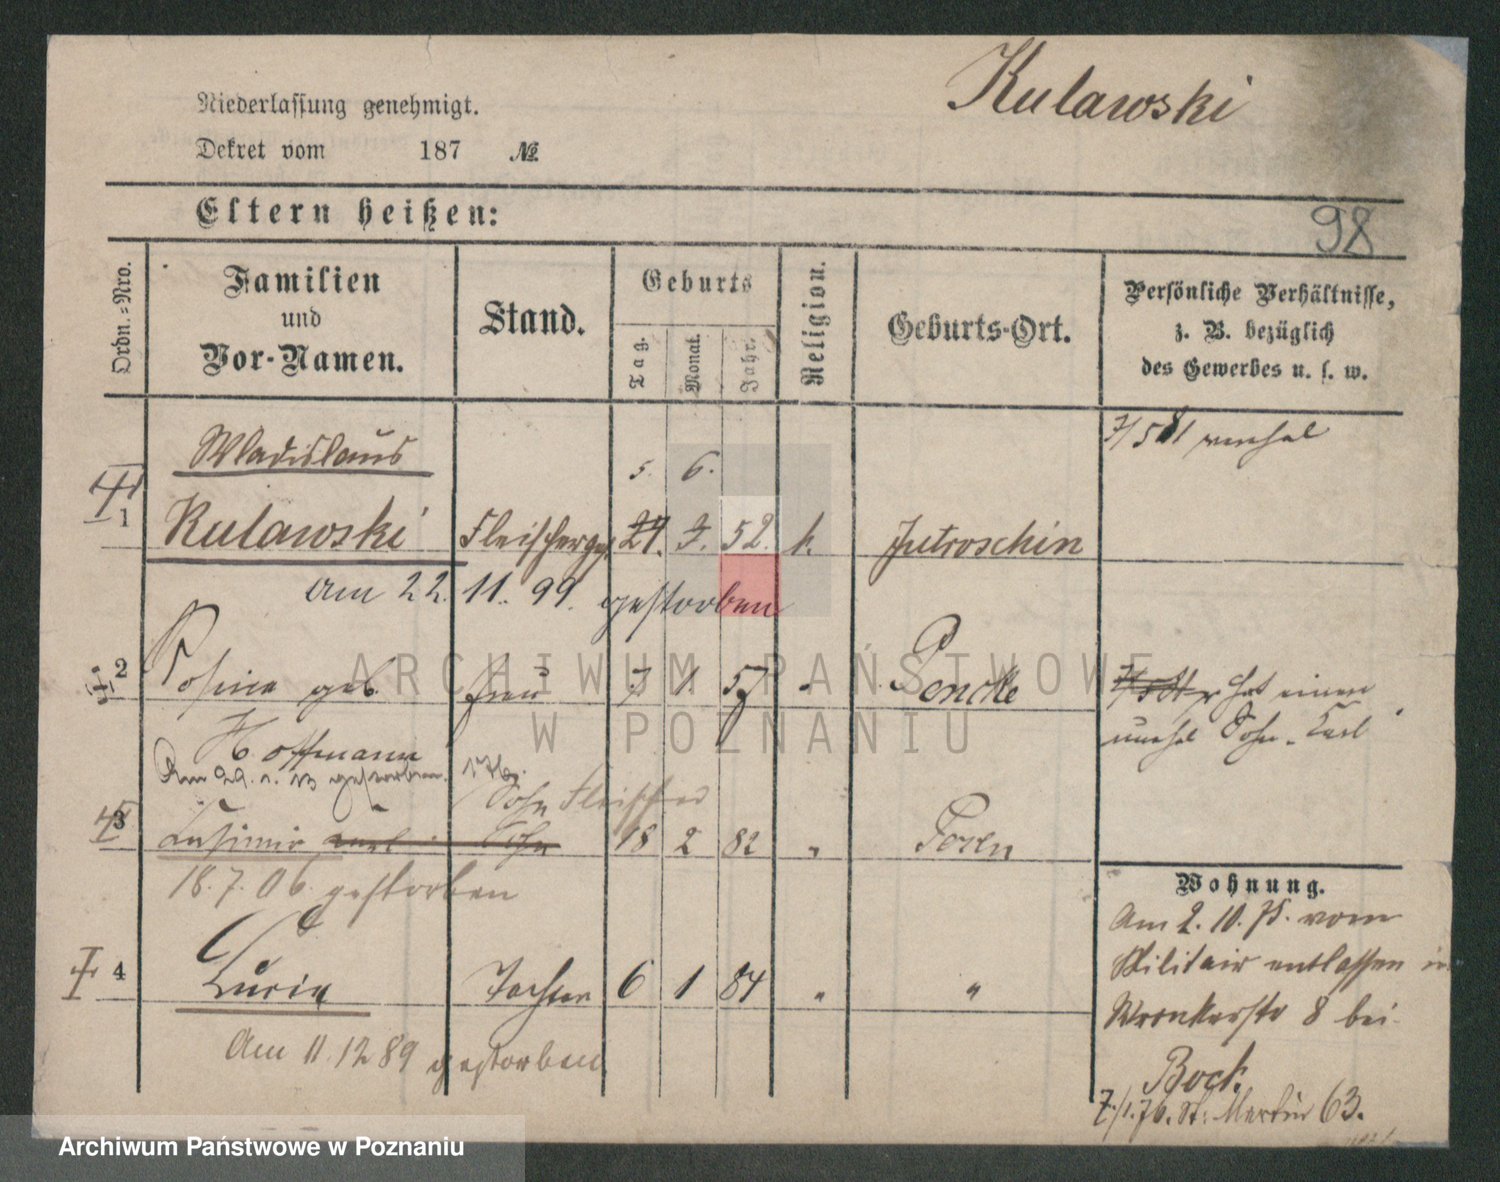 Kulawski
Niederlassung genehmigt.
Dekret vom 187 №
Eltern heißen:
98
Ordn.-Nro.
Familien
und
Vor-Namen.
Stand.
Geburts
Tag.
Monat.
Jahr.
Religion.
Geburts-Ort.
Persönliche Verhältnisse,
z. B. bezüglich
des Gewerbes u. s. w.
Wladislaus
5. 6.
1 Kulawski Fleischerges. 27. 7. 52. k. Jutroschin
am 22. 11. 99. gestorben
2 Rosina geb. Frau 7 1 57 " Pencke
hat einen
unehel Sohn Karl
Hoffmann
Am 29. gestorben.
Sohn Fleischer
3 Casimir Sohn 18 2 82 " Posen
18. 7. 06. gestorben
4 Lucia Tochter 6 1 84 " "
Am 11.12 89 gestorben
Wohnung.
Am 2. 10. 75. vom
Militair entlassen
Wronkerstr 8 bei
Bock.
7./1. 76. St: Martin 63.
ARCHIWUM PAŃSTWOWE
W POZNANIU
Archiwum Państwowe w Poznaniu